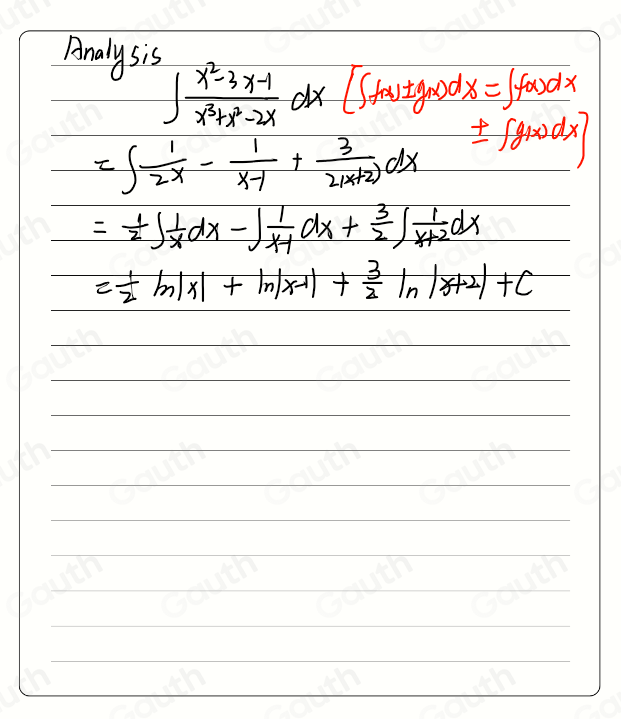 Analysis
∫ (x²-3x-1)/(x³+x²-2x) dx [∫f(x)±g(x)dx = ∫f(x)dx
± ∫g(x)dx]
= ∫ 1/(2x) - 1/(x-1) + 3/(2(x+2)) dx
= 1/2 ∫ 1/x dx - ∫ 1/(x-1) dx + 3/2 ∫ 1/(x+2) dx
= 1/2 ln|x| + ln|x-1| + 3/2 ln|x+2| + C